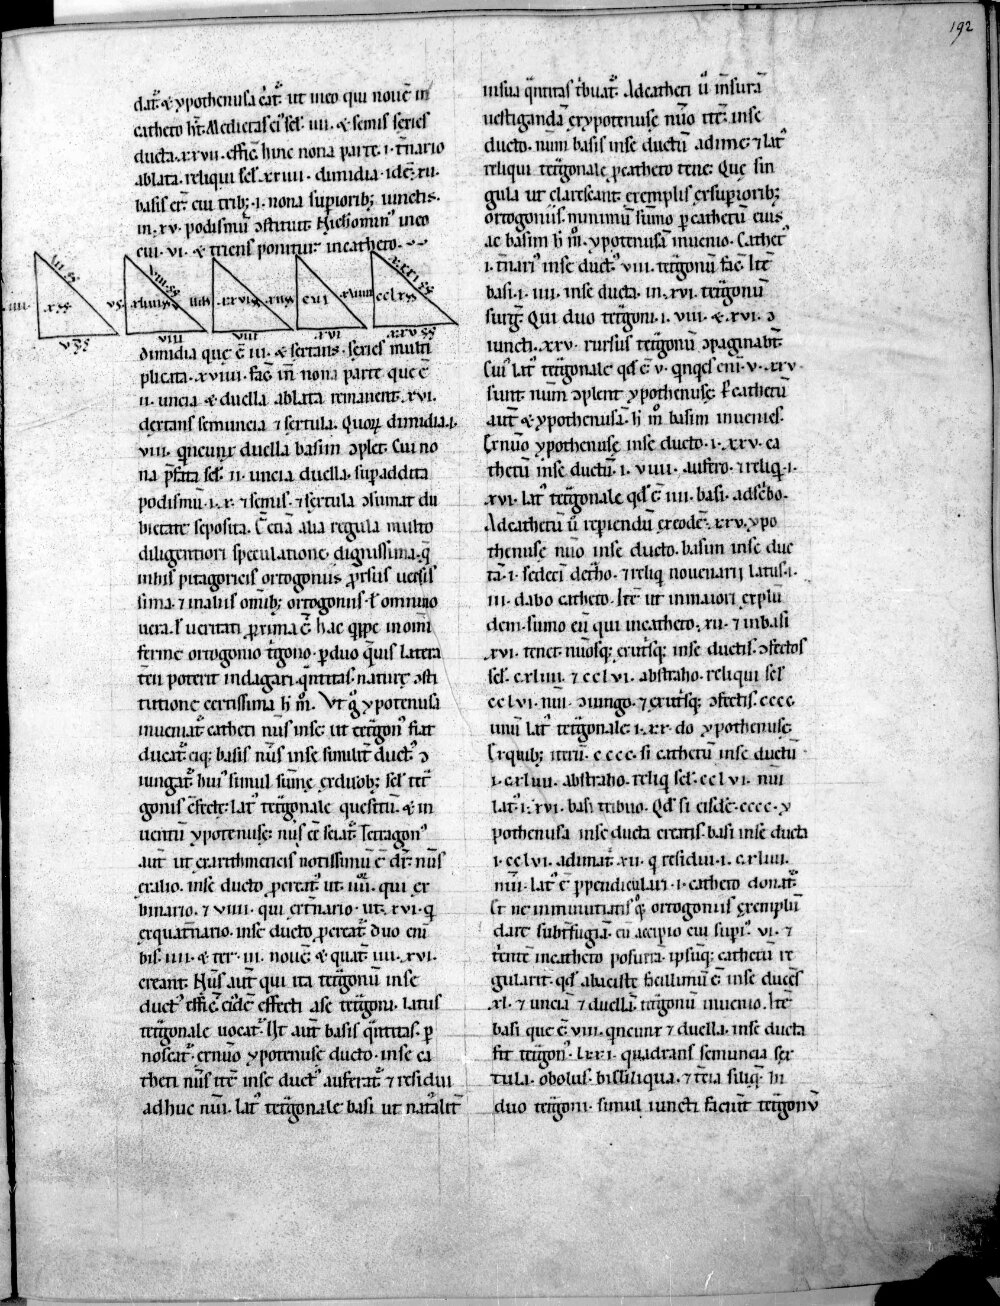 192
dat̄. & ypothenusa c̄at̄. ut in eo qui nouē in
catheto ht̄. Medietas ei' sēs. iiii. & semis series
ducta. xxvii. effic̄ hinc nona parte. i. t̄nario
ablata. reliqui sēs. xxiiii. dimidia. idē. xii.
basis er̄. cui trib; .i. nona superiorib; iunctis.
in. xv. podismū ɔstituit. Hichomin' in eo
cui. vi. & triens ponitur in catheto.
dimidia que ē iii. & sextans. series multi
plicata. xviiii. fac̄ in nona parte que ē
ii. uncia & duella ablata remanent. xvi.
dextans semuncia ⁊ sextula. Quorū dimidia .i.
viii. qncunx duella basim ɔplet. Cui no
na p̄fata sēs. ii. uncia duella. supaddita
podismū .i. x. ⁊ semis. ⁊ sextula ɔsumat du
bietate seposita. Ē etiā alia regula multo
diligentiori speculatione dignissima. q̄
in his pitagoricis ortogoniis p̄rsus ueris
sima. ⁊ in aliis omīb; ortogoniis. ł omnino
uera. ł ueritati p̄xima ē hac qppe in omi
ferme ortogonio t̄gono. p duo q̄uis latera
t̄cii poterit indagari. q̄ntitas nature ɔsti
tutione certissima h̄ m̊. Vt g̊ ypotenusa
inueniat̄ catheti nūs in se ut tet̄gon' fiat
ducat̄ eiq; basis nūs in se similit̄ duct' ɔ
iungat̄. hui' simul sūme ex duob; sēs tet̄
gonis ɔfecte. lat' tet̄gonale quesitū. & in
uentū ypotenuse nūs eē sciat̄. Tetragon'
aut̄ ut ex arithmeticis notissimū ē dr̄ nūs
ex alio. in se ducto pcreat'. ut. iiii. qui ex
binario. ⁊ viiii. qui ex t̄nario. ut xvi. q
ex quat̄nario. in se ducto p̄creat̄. duo eni
bis. iiii. & ter. iii. nouē & quat̄ iiii. xvi.
creant. Nūs aut̄ qui ita tet̄gonū in se
duct' effic̄ eidē effecti a se tet̄goni. latus
tet̄gonale uocat̄. Ut aut̄ basis q̄ntitas. p
noscat̄. ex nūo ypotenuse ducto in se ca
theti nūs itē in se duct' auferat̄ ⁊ residui
adhuc nūi. lat' tet̄gonale basi ut nat̄alit̄
in sua q̄ntitas t̄buat̄. Ad catheti ů m̄surā
uestigandā ex ypotenuse nūo itē in se
ducto. nūm basis in se ductū adime. ⁊ lat'
reliqui tet̄gonale p catheto tene. Que sin
gula ut clarescant. exemplis ex superiorib;
ortogoniis minimū sumo p cathetū eius
ac basim h̄ m̊. ypotenusā inuenio. Cathet'
.i. t̄nari' in se duct'. viii. tet̄gonū fac̄. Itē
basi .i. iiii. in se ducta. in. xvi. tet̄gonū
surgit̄. Qui duo tet̄goni .i. viii. & xvi. ɔ
iuncti. xxv. rursus tet̄gonū ɔpaginabt̄.
Cui' lat' tet̄gonale qd ē v. qnqes eni. v. xxv.
sunt. nūm ɔplent ypothenuse. Per cathetū
aut̄ & ypothenusā. h̄ m̊ basim inuenies.
Ex nūo ypothenuse in se ducto .i. xxv. ca
thetū in se ductū .i. viiii. aufero. ⁊ reliq. i.
xvi. lat' tet̄gonale qd ē iiii. basi. adscbo.
Ad cathetū ů repiendū ex eodē. xxv. ypo
thenuse nūo in se ducto. basim in se duc
tā. i. sedeci det̄ho. ⁊ reliq nouenarii latus .i.
iii. dabo catheto. Itē ut in maiori exēplū
dem. sumo eū qui in catheto. xii. ⁊ in basi
xvi. tenet. nūosq; eruscq; in se ductis. ɔfectos
sēs. cxliiii. ⁊ cclvi. abstraho. reliqui sēs
cclvi. nūi. ɔiungo. ⁊ ex utrisq; ɔfectis. cccc.
unū lat' tet̄gonale .i. xx. do ypothenuse.
Ex quib; iterū. cccc. si cathetū in se ductū
.i. cxliiii. abstraho. reliq sēs. cclvi. nūi
lat' .i. xvi. basi tribuo. Qd si eisdē. cccc. y
pothenusa in se ducta creatis. basi in se ducta
.i. cclvi. adimat̄. xii. q residui .i. cxliiii.
nūi. lat' ē ppendiculari .i. catheto donat̄.
Et ne in minutiarū q̊q; ortogoniis exemplū
dare subt̄fugiā. eū accipio cui supi'. vi. ⁊
t̄ente in catheto posita. ipsūq; cathetū te
gularit̄. qd abaciste facillimū ē in se duces
xl. ⁊ unciā ⁊ duellā. tet̄gonū inuenio. Itē
basi que ē viii. qncunx ⁊ duella. in se ducta
fit tet̄gon'. lxxi. quadrans semuncia sex
tula. obolus. bissiliqua. ⁊ t̄cia siliq. Hi
duo tet̄goni. simul iuncti faciūt tet̄gonū